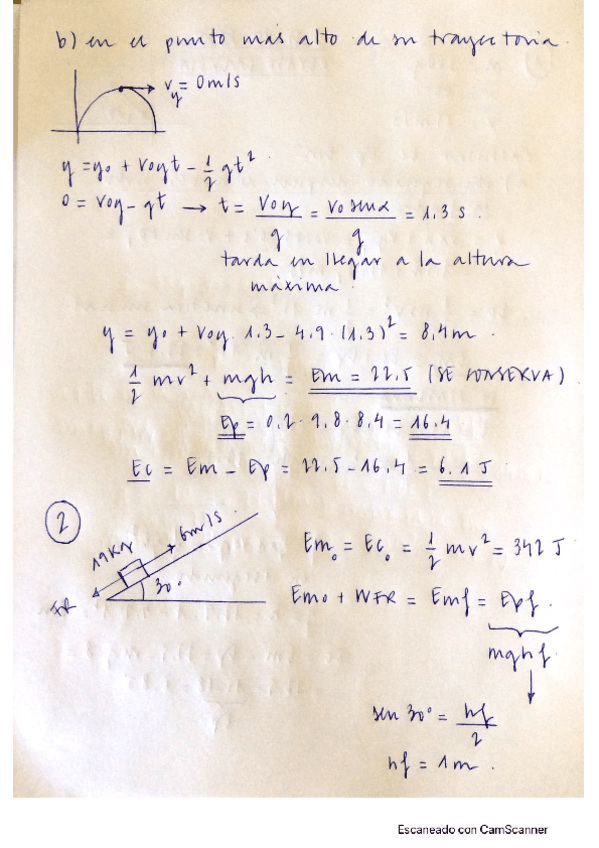 b) en el punto más alto de su trayectoria.
vy = 0 m/s
y = y0 + v0y t - 1/2 gt²
0 = v0y - gt → t = v0y/g = v0 sinα/g = 1.3 s.
tarda en llegar a la altura
máxima.
y = y0 + v0y · 1.3 - 4.9 · (1.3)² = 8,4 m.
1/2 mv² + mgh = Em = 22.5 (SE CONSERVA)
Ep = 0,2 · 9,8 · 8,4 = 16.4
Ec = Em - Ep = 22.5 - 16.4 = 6.1 J
2
19 Kg 6 m/s
30°
FR
Em0 = Ec0 = 1/2 mv² = 342 J
Em0 + WFR = Emf = Epf.
mghf.
sen 30° = hf/2
hf = 1 m.
Escaneado con CamScanner